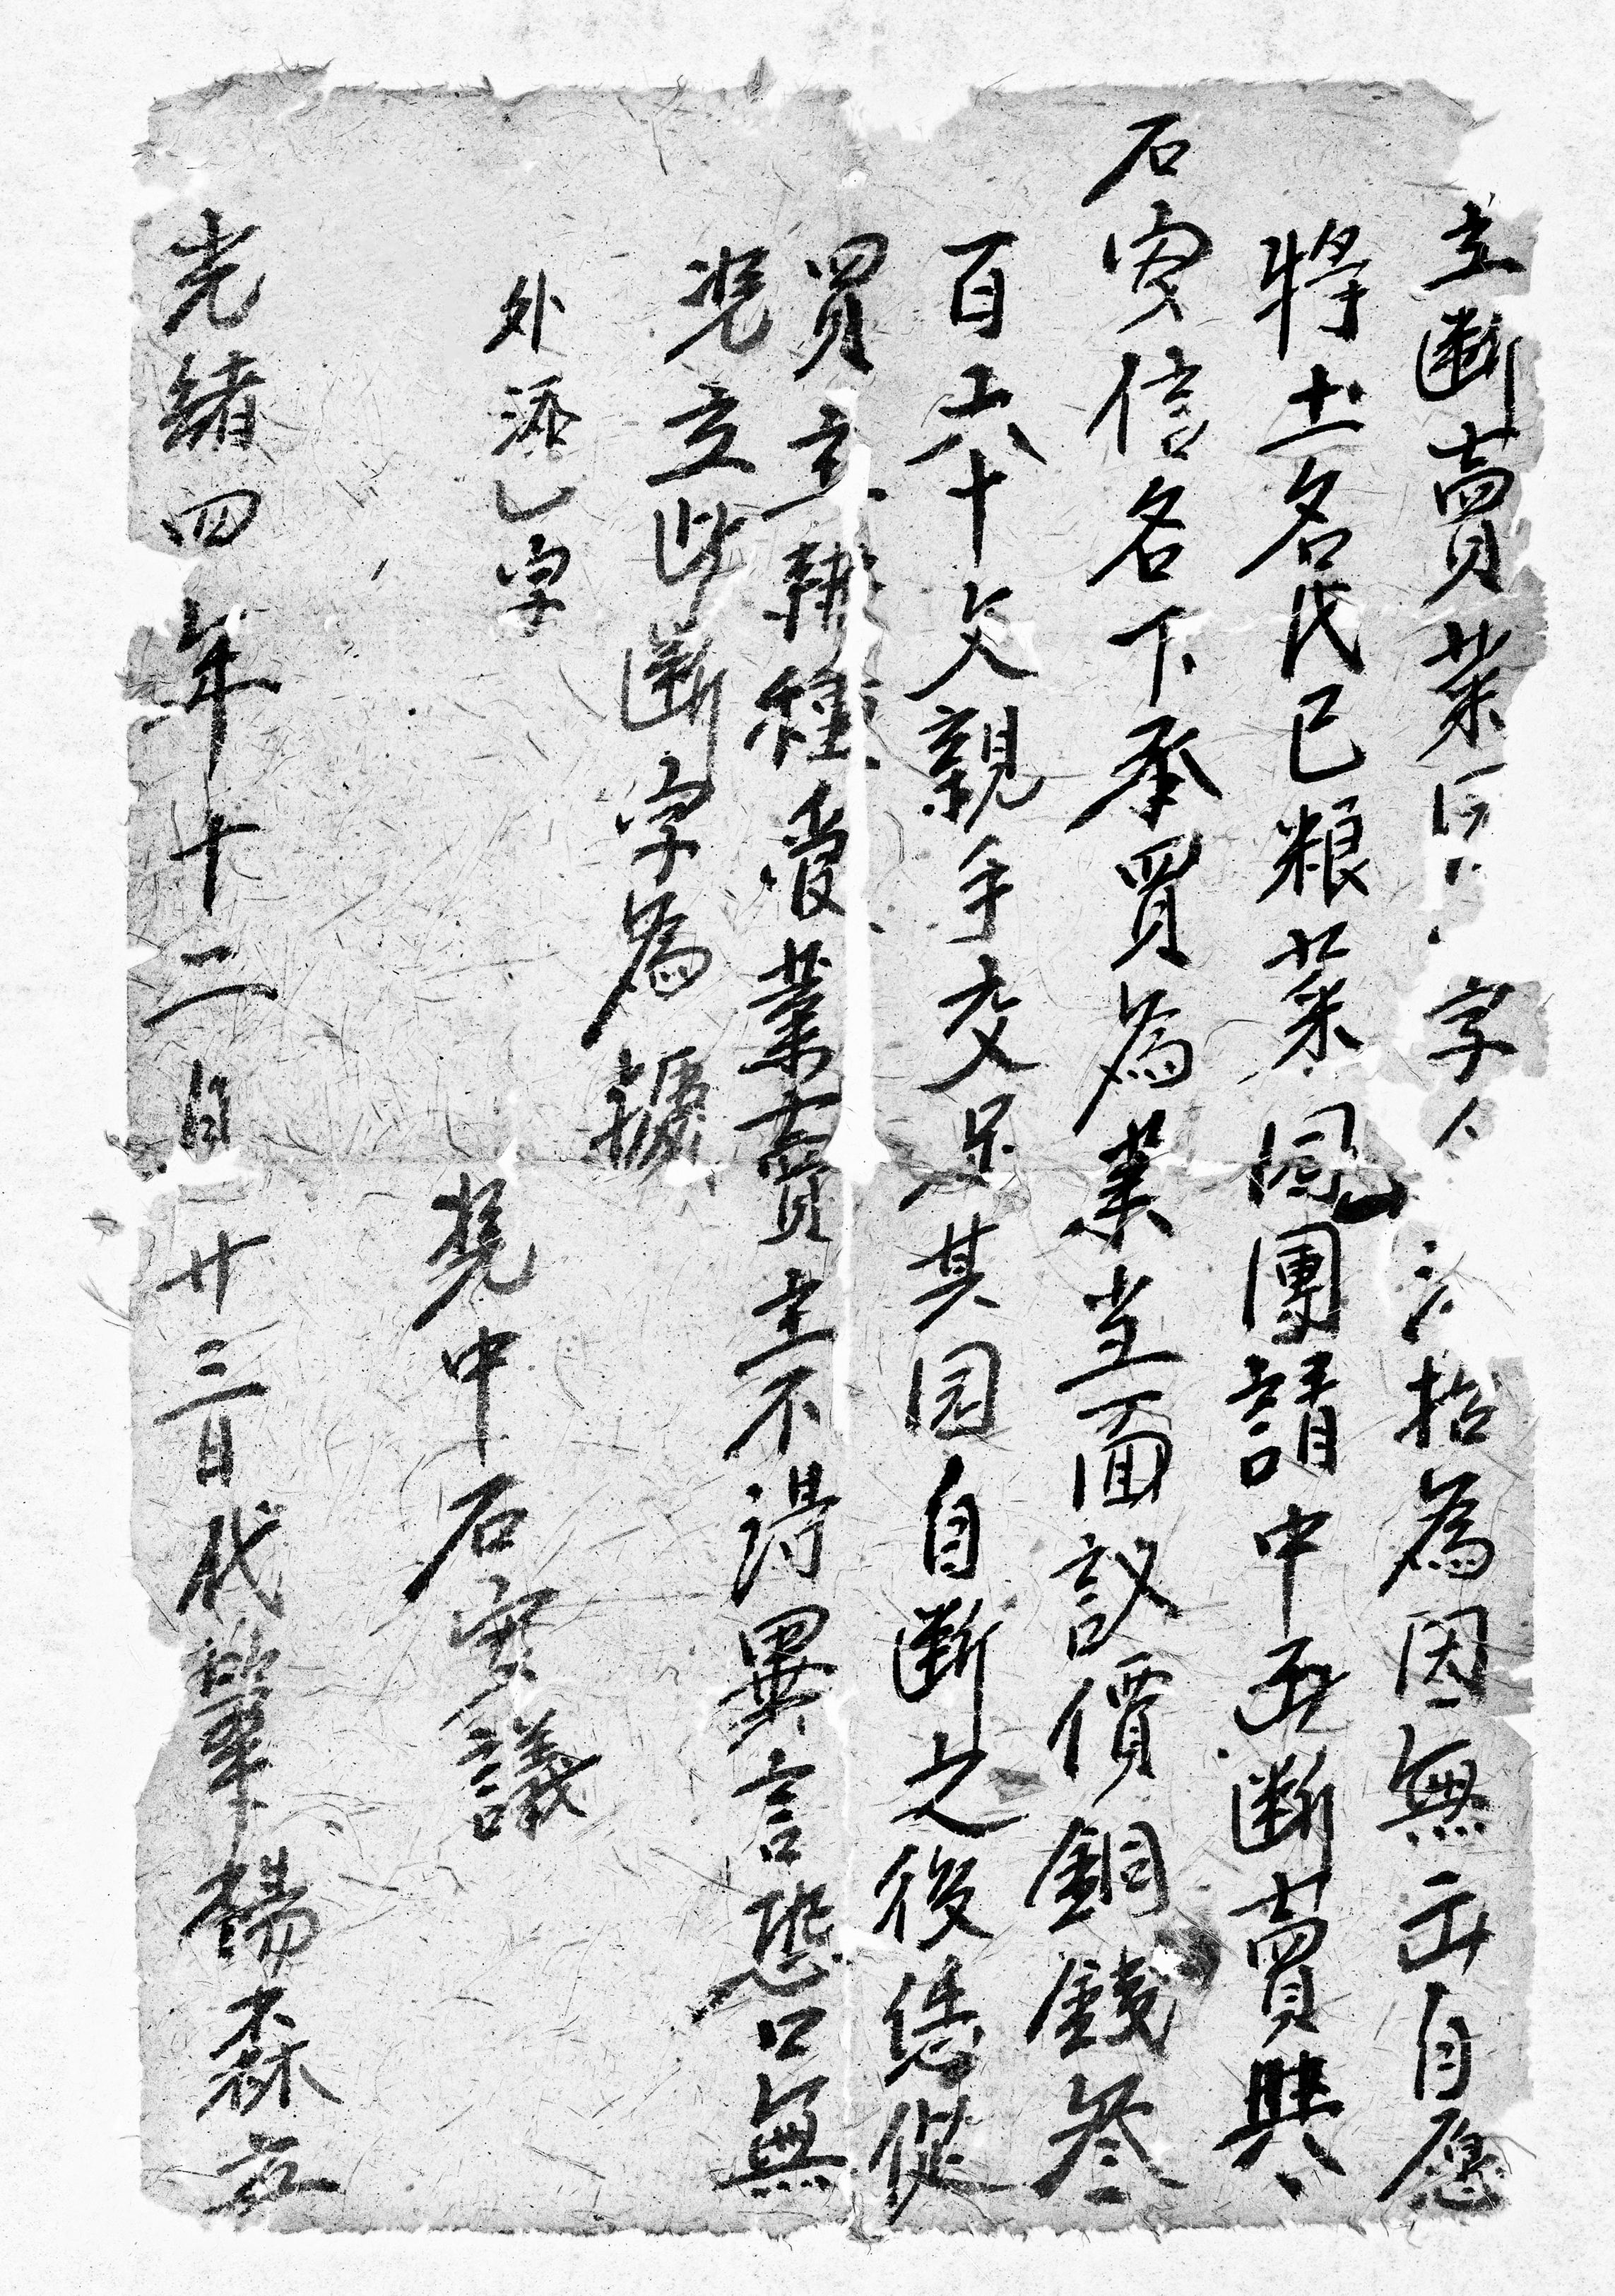 立断賣菜字人抬為因無出自愿
將土名代已粮菜园團請中丞断賣與
石安信名下承買為業当面議價銅錢叁
百六十文親手交足其园自断之後恁從
買主耕種管業賣主不得異言恐口無
凭立此断字為據
外添乚字
凴中石安議
光緒四年十二月廿三日代筆楊森立